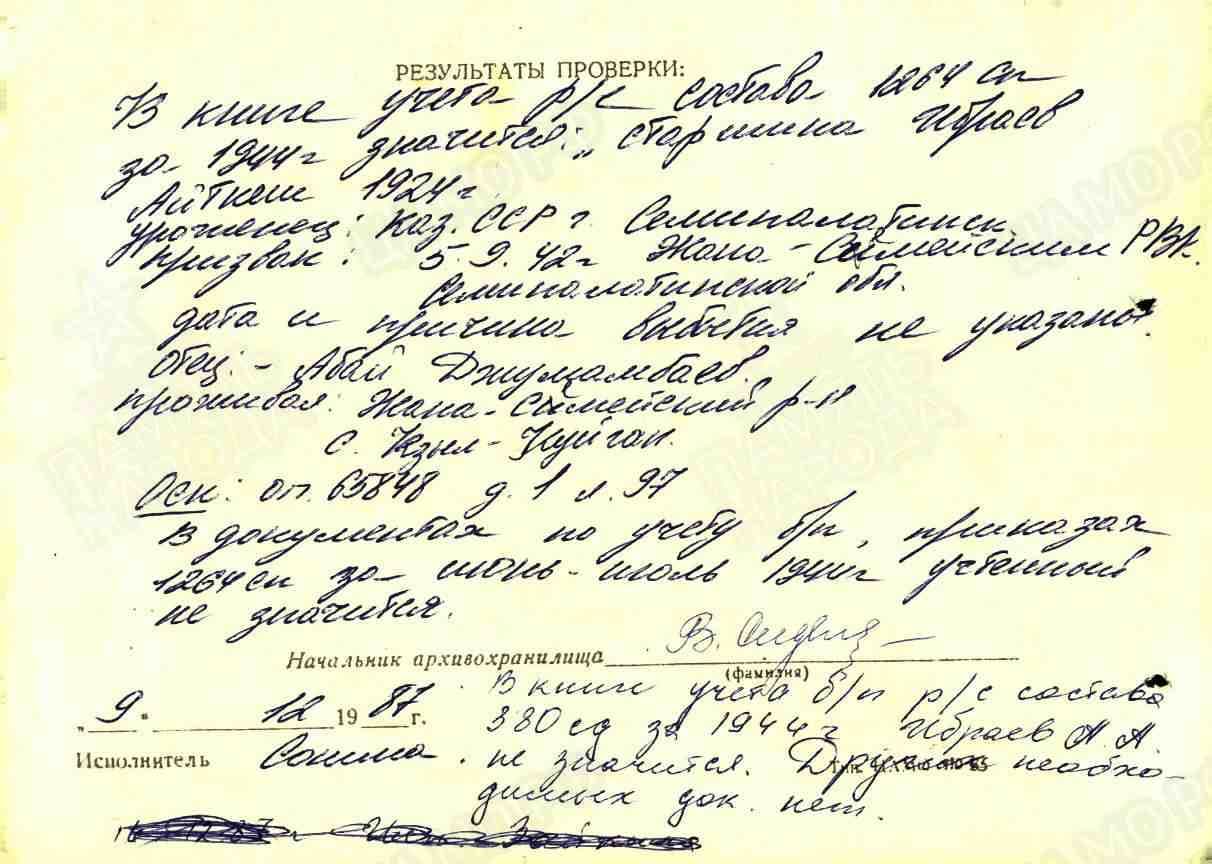 РЕЗУЛЬТАТЫ ПРОВЕРКИ:
В книге учета р/с состава 1264 сп
за 1944г значится: „старшина Ибраев
Айткеш 1924г.
уроженец: Каз.ССР г. Семипалатинск.
призван: 5.9.42г Жана-Семейским РВК.
Семипалатинской обл.
дата и причина выбытия не указана.
Отец: - Абай
проживал: Жана-Семейский р-н
с. Кзыл-Куйган.
Осн: оп. 65848 д.1 л.97
В документах по учету б/п, приказах
1264сп за июнь-июль 1944г учтенный
не значится.
Начальник архивохранилища В.
(фамилия)
„9" 12 1987 г.
Исполнитель
В книге учета б/п р/с состава
380сд за 1944г Ибраев А.А.
не значится. Других необхо-
димых док. нет.